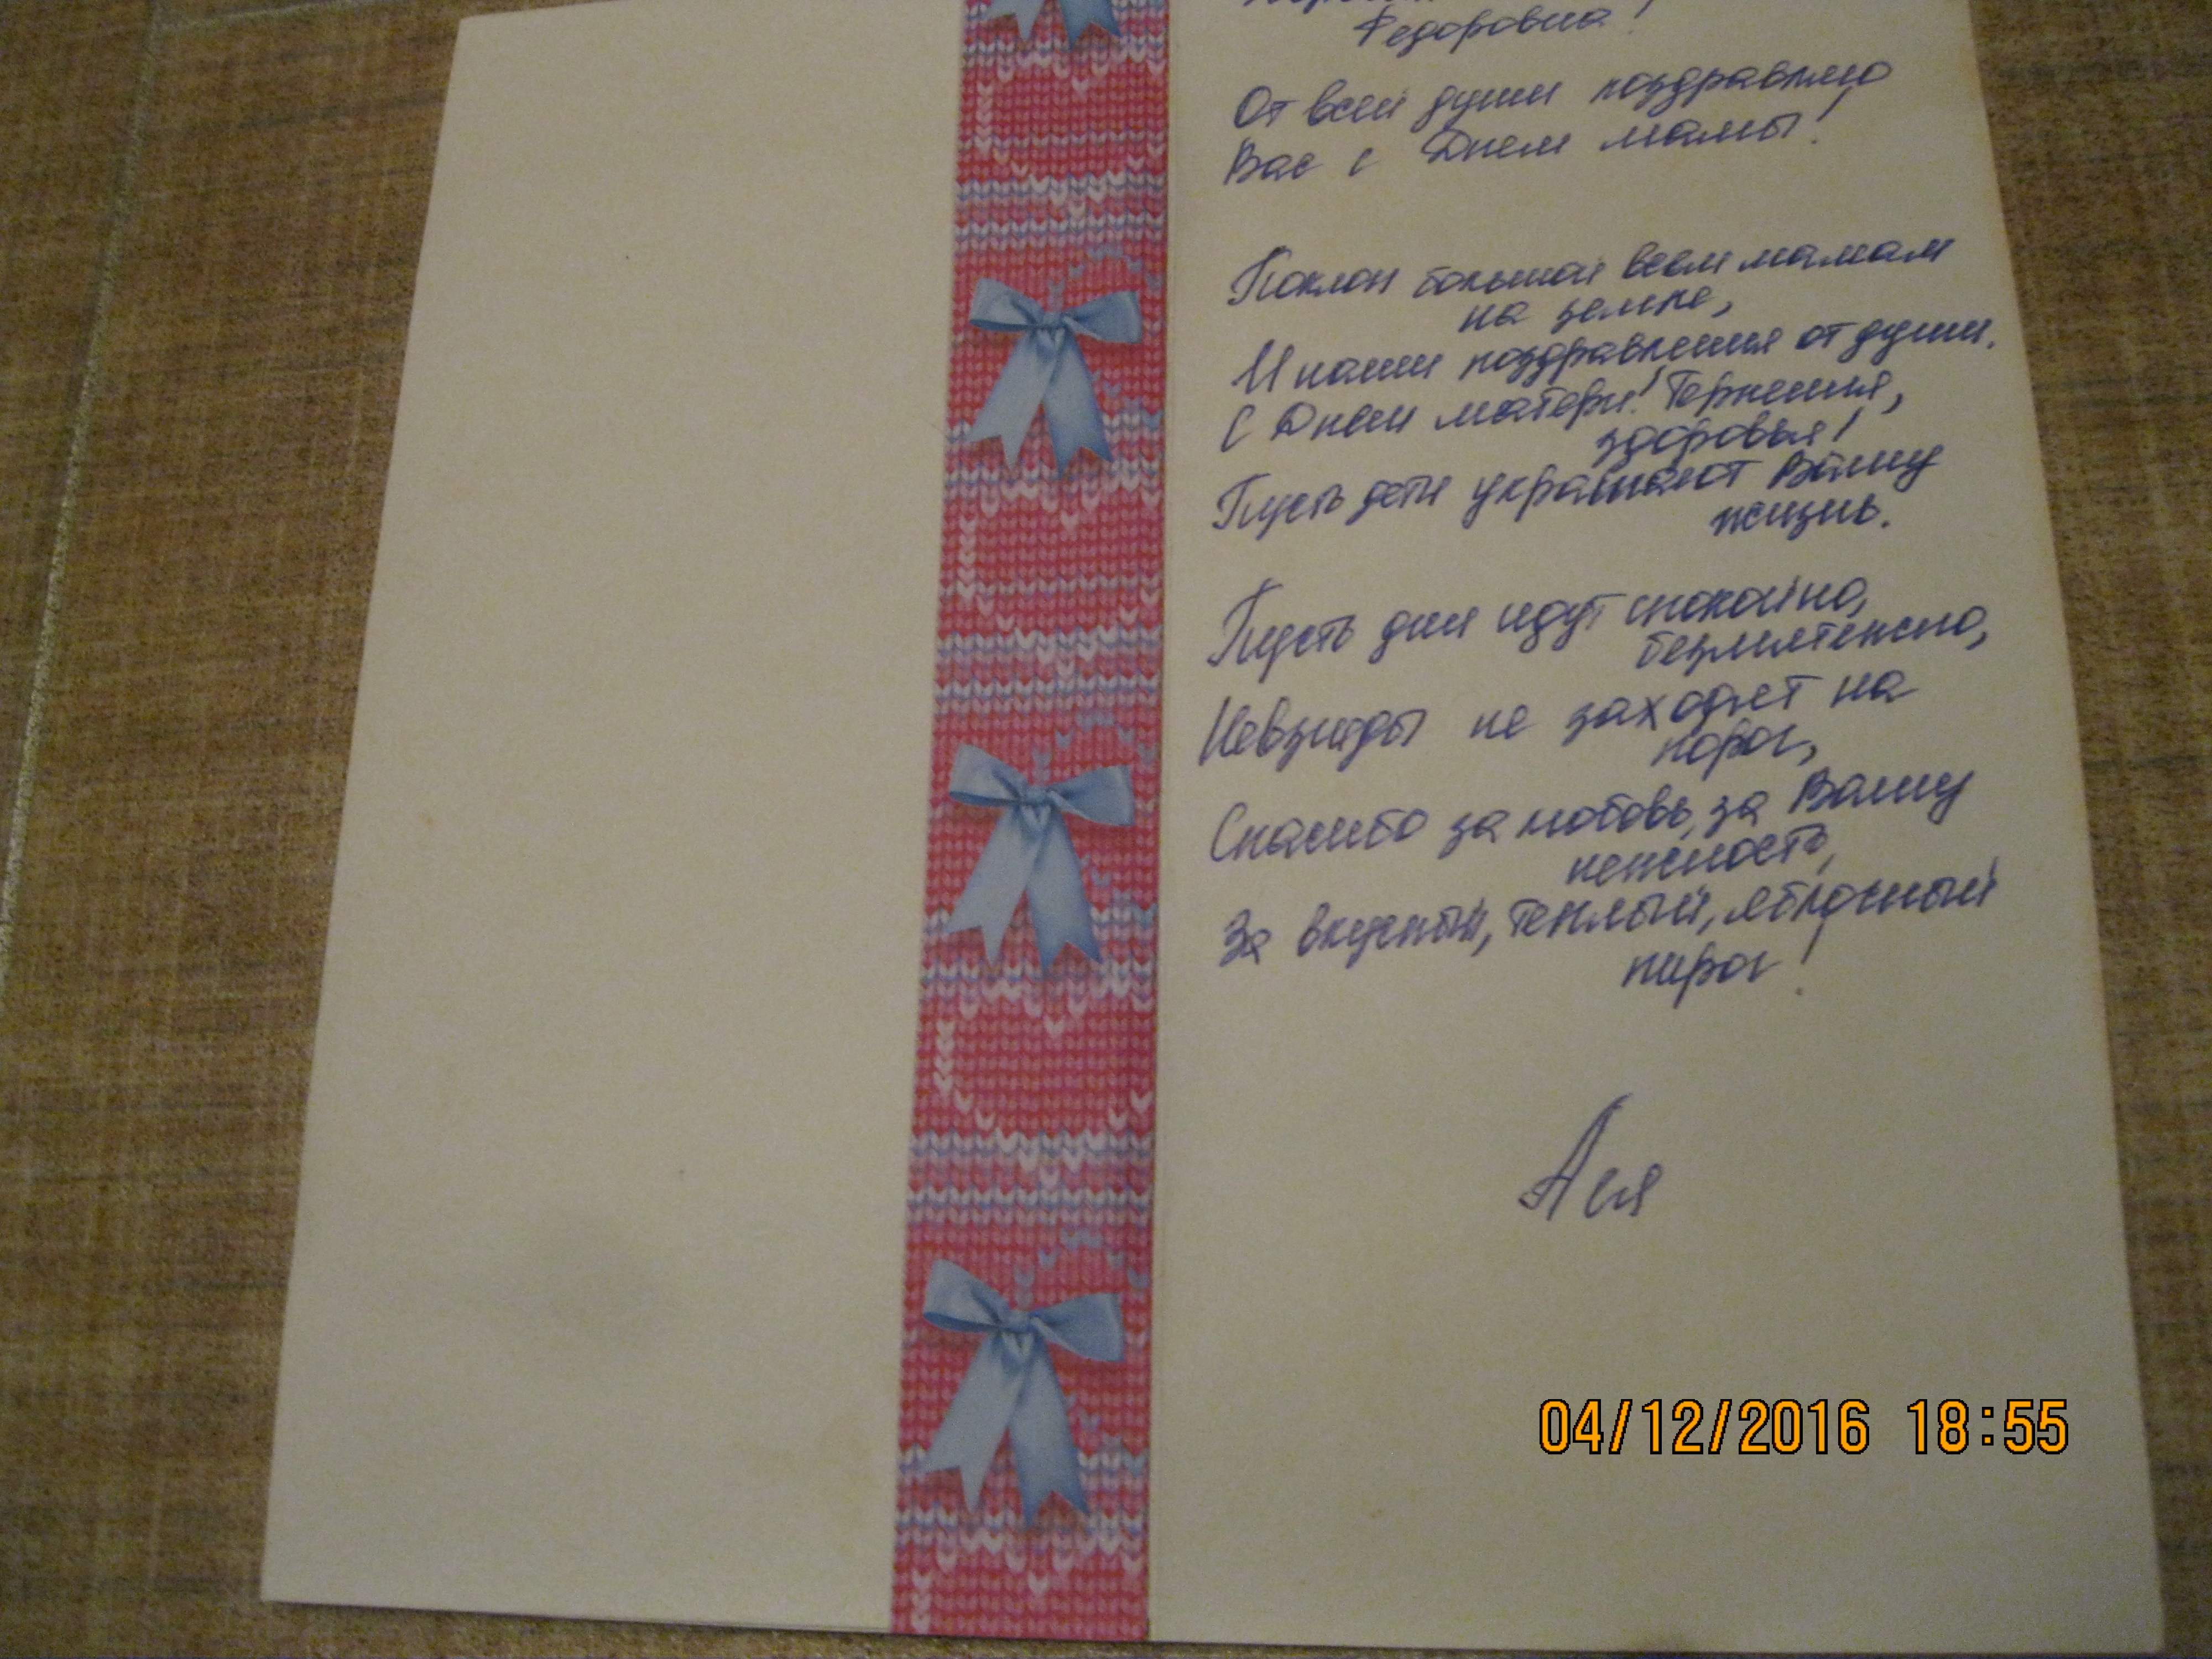 Федоровна!
От всей души поздравляю
Вас с Днем мамы!
Поклон большой всем мамам
на земле,
И наши поздравления от души.
С Днем матери! Терпения,
здоровья!
Пусть дети украшают Вашу
жизнь.
Пусть дни идут спокойно,
безмятежно,
Невзгоды не заходят на
порог,
Спасибо за любовь, за Вашу
нежность,
За вкусный, теплый, яблочный
пирог!
Ася
04/12/2016 18:55